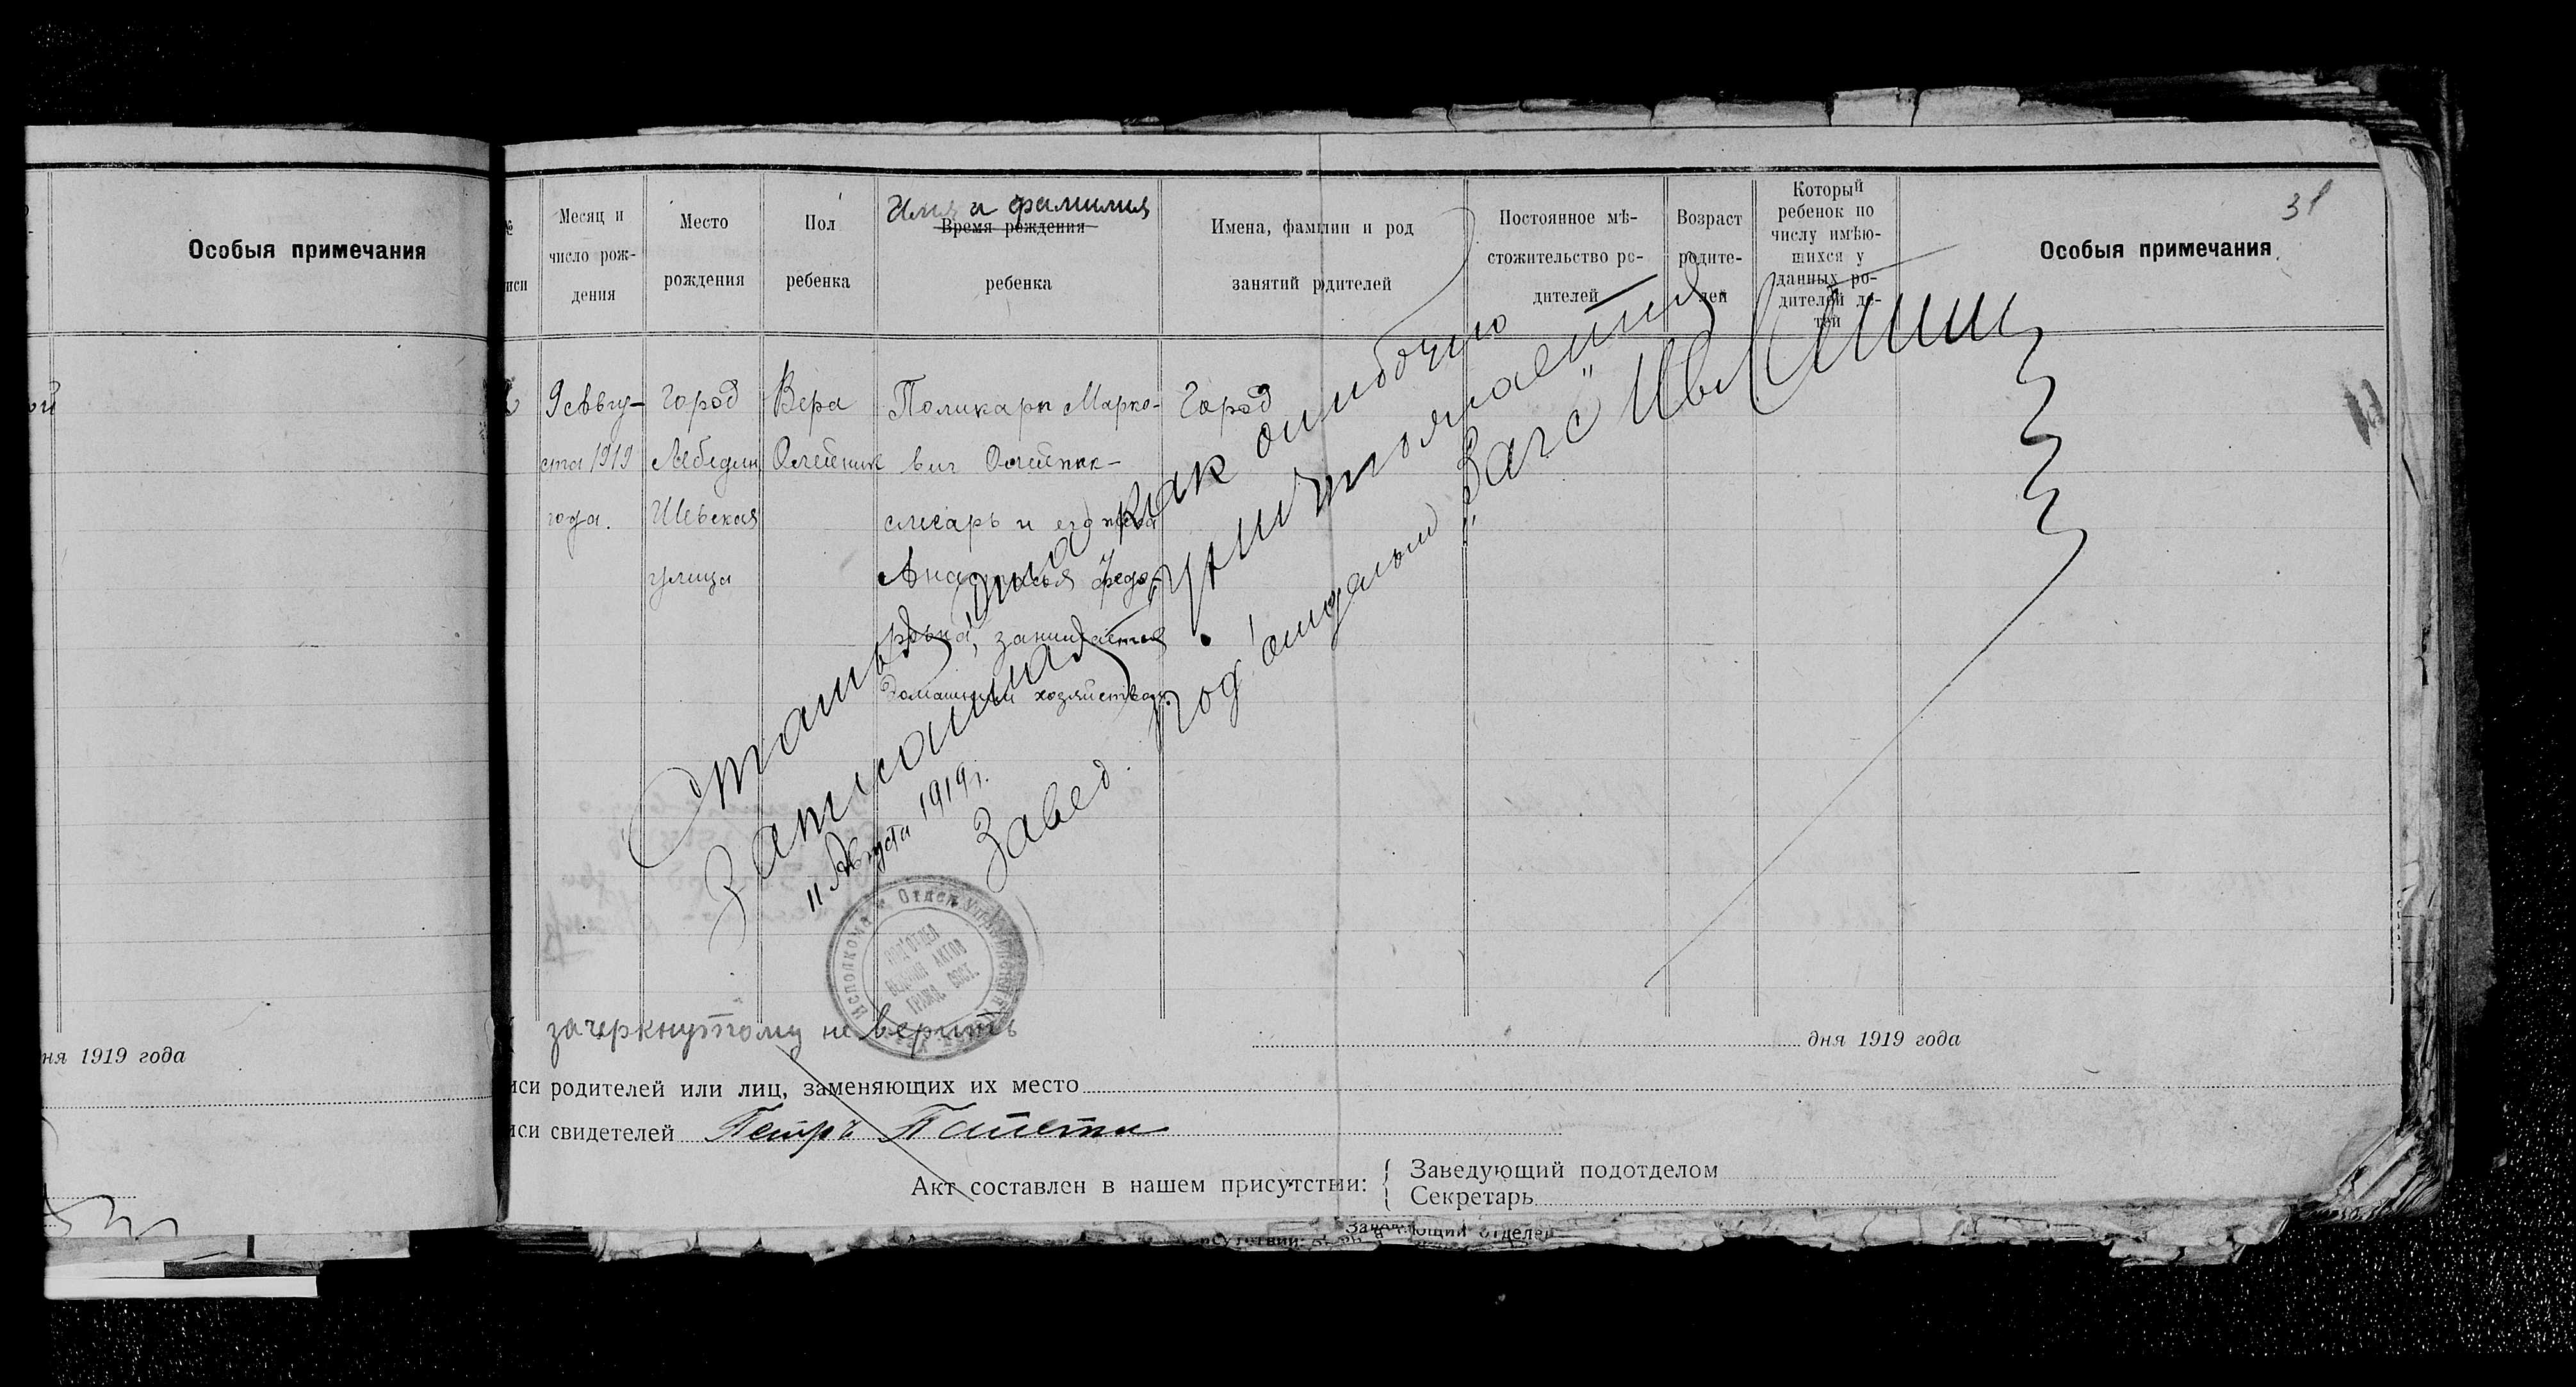 Особыя примечания
ня 1919 года
31
№
иси
Месяц и
число рож-
дения
Место
рождения
Пол
ребенка
Имя и фамилия
Время рождения
ребенка
Имена, фамилии и род
занятий родителей
Постоянное мѣ-
стожительство ро-
дителей
Возраст
родите-
лей
Который
ребенок по
числу имѣю-
щихся у
данных ро-
дителей де-
тей
Особыя примечания
9 Авгу-
ста 1919
года.
город
Лебедин
улица
Вера
Олейник
Поликарп Марко-
вич Олейник-
слесарь и его жена
Анастасья Федо-
ровна, занимается
домашним хозяйством.
Город
как ошибочно
записанный, уничтожается
11 Августа 1919 г.
Завед. Под'отделом "Загс"
Исполкома * Отдел Управления
ПОД'ОТДЕЛ
ВЕДЕНИЯ АКТОВ
ГРАЖД. СОСТ.
зачеркнутому не верить
дня 1919 года
иси родителей или лиц, заменяющих их место
иси свидетелей Петръ
Акт составлен в нашем присутствии:
Заведующий подотделом
Секретарь
Заведующий отделом